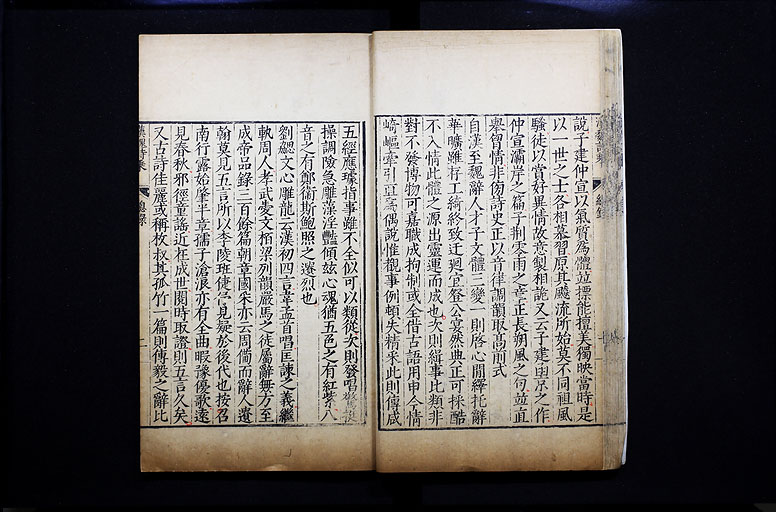 說子建仲宣以氣質為體並標能擅美獨映當時是
以一世之士各相慕習原其飈流所始莫不同祖風
騷徒以賞好異情故意製相詭又云子建函京之作
仲宣灞岸之篇子荆零雨之章正長朔風之句並直
舉胷情非傍詩史正以音律調韻取高前式
自漢至魏辭人才子文體三變一則啓心閒繹托辭
華曠雖存工綺終致迂迴宜登公宴然典正可採酷
不入情此體之源出靈運而成也次則緝事比類非
對不發博物可嘉職成拘制或全借古語用申今情
崎嶇牽引直為偶說惟覩事例頓失精采此則傅咸
五經應璩指事雖不全似可以類從次則發唱驚挺
操調險急雕藻淫艷傾炫心魂猶五色之有紅紫八
音之有鄭衞斯鮑照之遺烈也
劉勰文心雕龍云漢初四言韋孟首唱匡諫之義繼
軌周人孝武愛文栢梁列韻嚴馬之徒屬辭無方至
成帝品錄三百餘篇朝章國采亦云周備而辭人遺
翰莫見五言所以李陵班婕妤見疑於後代也按召
南行露始肇半章孺子滄浪亦有全曲暇豫優歌遠
見春秋邪徑童謠近在成世閱時取證則五言久矣
又古詩佳麗或稱枚叔其孤竹一篇則傅毅之辭比
漢魏詩乘
總錄
二